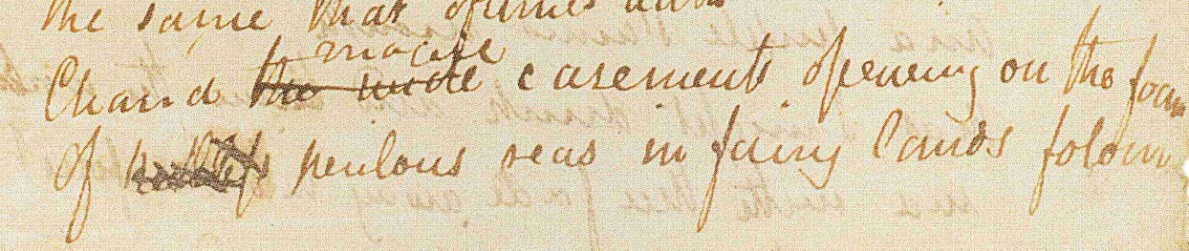 the same that oftimes hath
magic
Charm'd the wide casements opening on the foam
Of perilous seas in fairy lands folorn